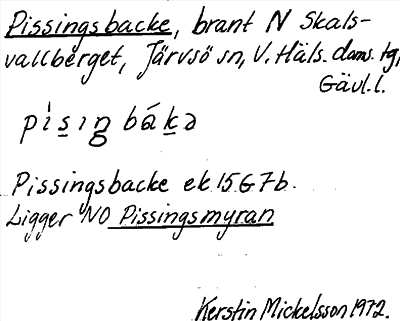 Pissingsbacke, brant N Skals-
vallberget, Järvsö sn, V. Häls. doms. tg,
Gävl. l.
pìsıng bákə
Pissingsbacke ek 15G7b.
Ligger NO Pissingsmyran
Kerstin Mickelsson 1972.